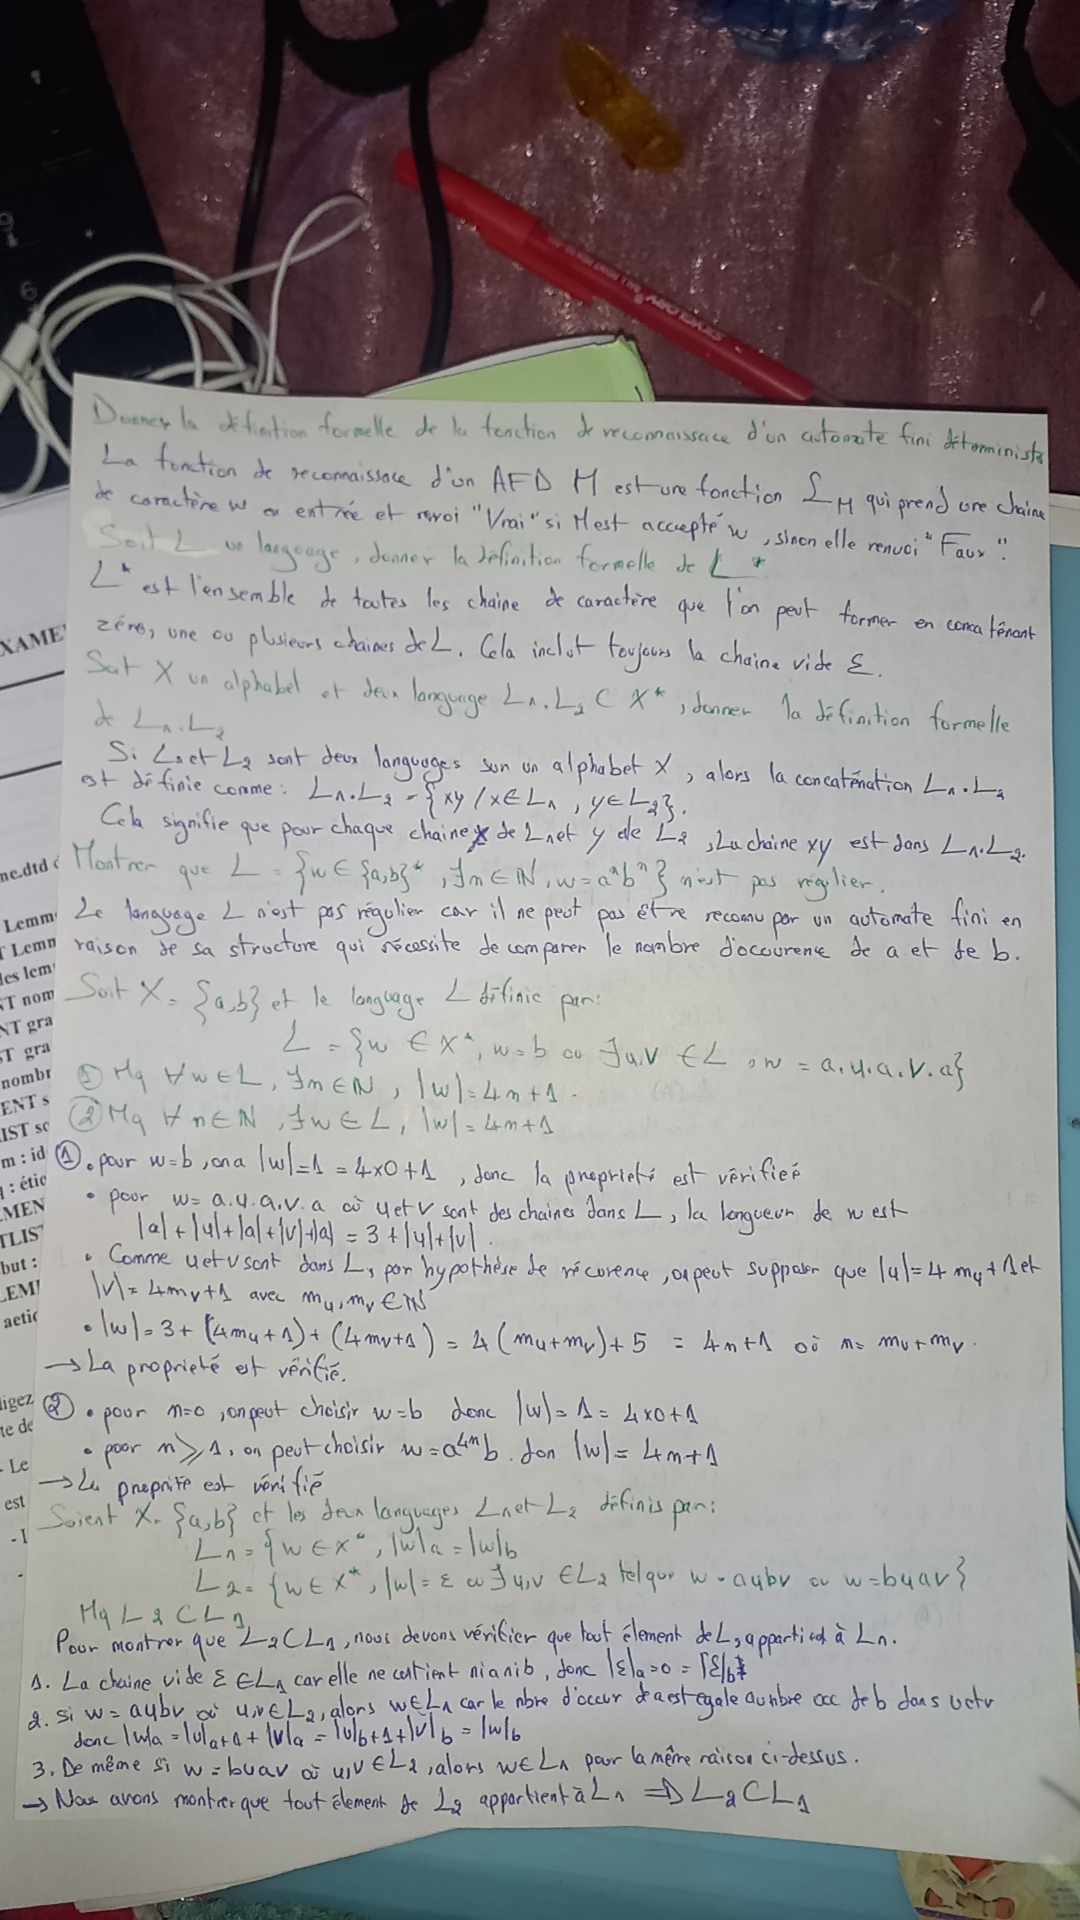 9
6
Donner la définition formelle de la fonction de reconnaissace d'un automate fini déterministe
La fonction de reconnaissace d'un AFD M est une fonction L_M qui prend une chaine
de caractère w en entrée et renvoi "Vrai" si M est accepté w, sinon elle renvoi "Faux".
Soit L un language, donner la définition formelle de L*
L* est l'ensemble de toutes les chaine de caractère que l'on peut former en concaténant
zéro, une ou plusieurs chaines de L. Cela inclut toujours la chaine vide ε.
Soit X un alphabet et deux language L1.L2 ⊂ X*, donner la définition formelle
de L1.L2
Si L1 et L2 sont deux languages sur un alphabet X, alors la concaténation L1.L2
est définie comme : L1.L2 = {xy / x∈L1, y∈L2}.
Cela signifie que pour chaque chaine x de L1 et y de L2, La chaine xy est dans L1.L2.
Montrer que L = {w ∈ {a,b}*, ∃n∈ℕ, w=aⁿbⁿ} n'est pas régulier.
Le language L n'est pas régulier car il ne peut pas être reconnu par un automate fini en
raison de sa structure qui nécessite de comparer le nombre d'occurence de a et de b.
Soit X = {a,b} et le language L définie par:
L = {w ∈ X*, w=b ou ∃u,v ∈ L, w = a.u.a.v.a}
① Mq ∀w∈L, ∃n∈ℕ, |w|=4n+1.
② Mq ∀n∈ℕ, ∃w∈L, |w|=4n+1
① • pour w=b, on a |w|=1=4×0+1, donc la proprieté est vérifieé
• pour w= a.u.a.v.a où u et v sont des chaines dans L, la longueur de w est
|a|+|u|+|a|+|v|+|a| = 3+|u|+|v|.
• Comme u et v sont dans L, par hypothèse de récurence, on peut supposer que |u|=4mu+1 et
|v|=4mv+1 avec mu,mv∈ℕ
• |w|=3+(4mu+1)+(4mv+1) = 4(mu+mv)+5 = 4n+1 où n= mu+mv.
→ La proprieté est vérifié.
② • pour n=0, on peut choisir w=b donc |w|=1=4×0+1
• pour n⩾1, on peut choisir w=a⁴ⁿb. don |w|=4n+1
→ La proprité est vérifié
Soient X= {a,b} et les deux languages L1 et L2 définis par:
L1={w∈X*, |w|a=|w|b
L2={w∈X*, |w|=ε ou ∃u,v ∈L2 tel que w=aubv ou w=buav}
Mq L2⊂L1
Pour montrer que L2⊂L1, nous devons vérifier que tout élement de L2 appartient à L1.
1. La chaine vide ε∈L1 car elle ne contient ni a ni b, donc |ε|a=0=|ε|b
2. si w= aubv où u,v∈L2, alors w∈L1 car le nbre d'occur de a est egale au nbre occ de b dans u et v
donc |w|a=|u|a+1+|v|a=|u|b+1+|v|b=|w|b
3. De même si w=buav où u,v∈L2, alors w∈L1 pour la même raison ci-dessus.
→ Nous avons montrer que tout élement de L2 appartient à L1 ⇒ L2⊂L1
XAME
me.dtd
Lemm
Lemn
les lem
ST nom
NT gra
ST gra
nombr
ENT s
IST sc
m : id
: étic
MEN
TLIS
but :
EM
actic
ligez
te de
- Le
est